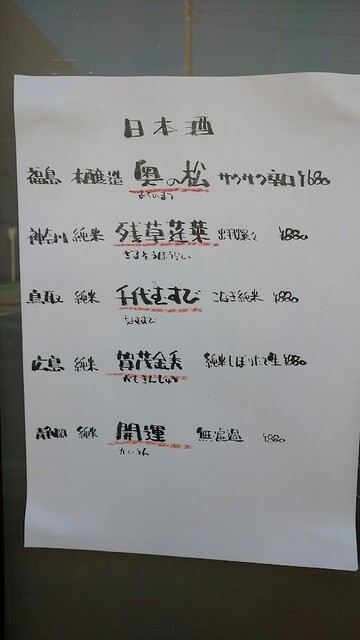 日本酒
福島 本醸造 奥の松 サクサク辛口 ¥680
おくのまつ
神奈川 純米 残草蓬莱 出羽燦々 ¥880
ざるそうほうらい
鳥取 純米 千代むすび こなき純米 ¥880
ちよむすび
広島 純米 賀茂金秀 純米しぼりたて生 ¥880
かもきんしゅう
静岡 純米 開運 無濾過 ¥880
かいうん